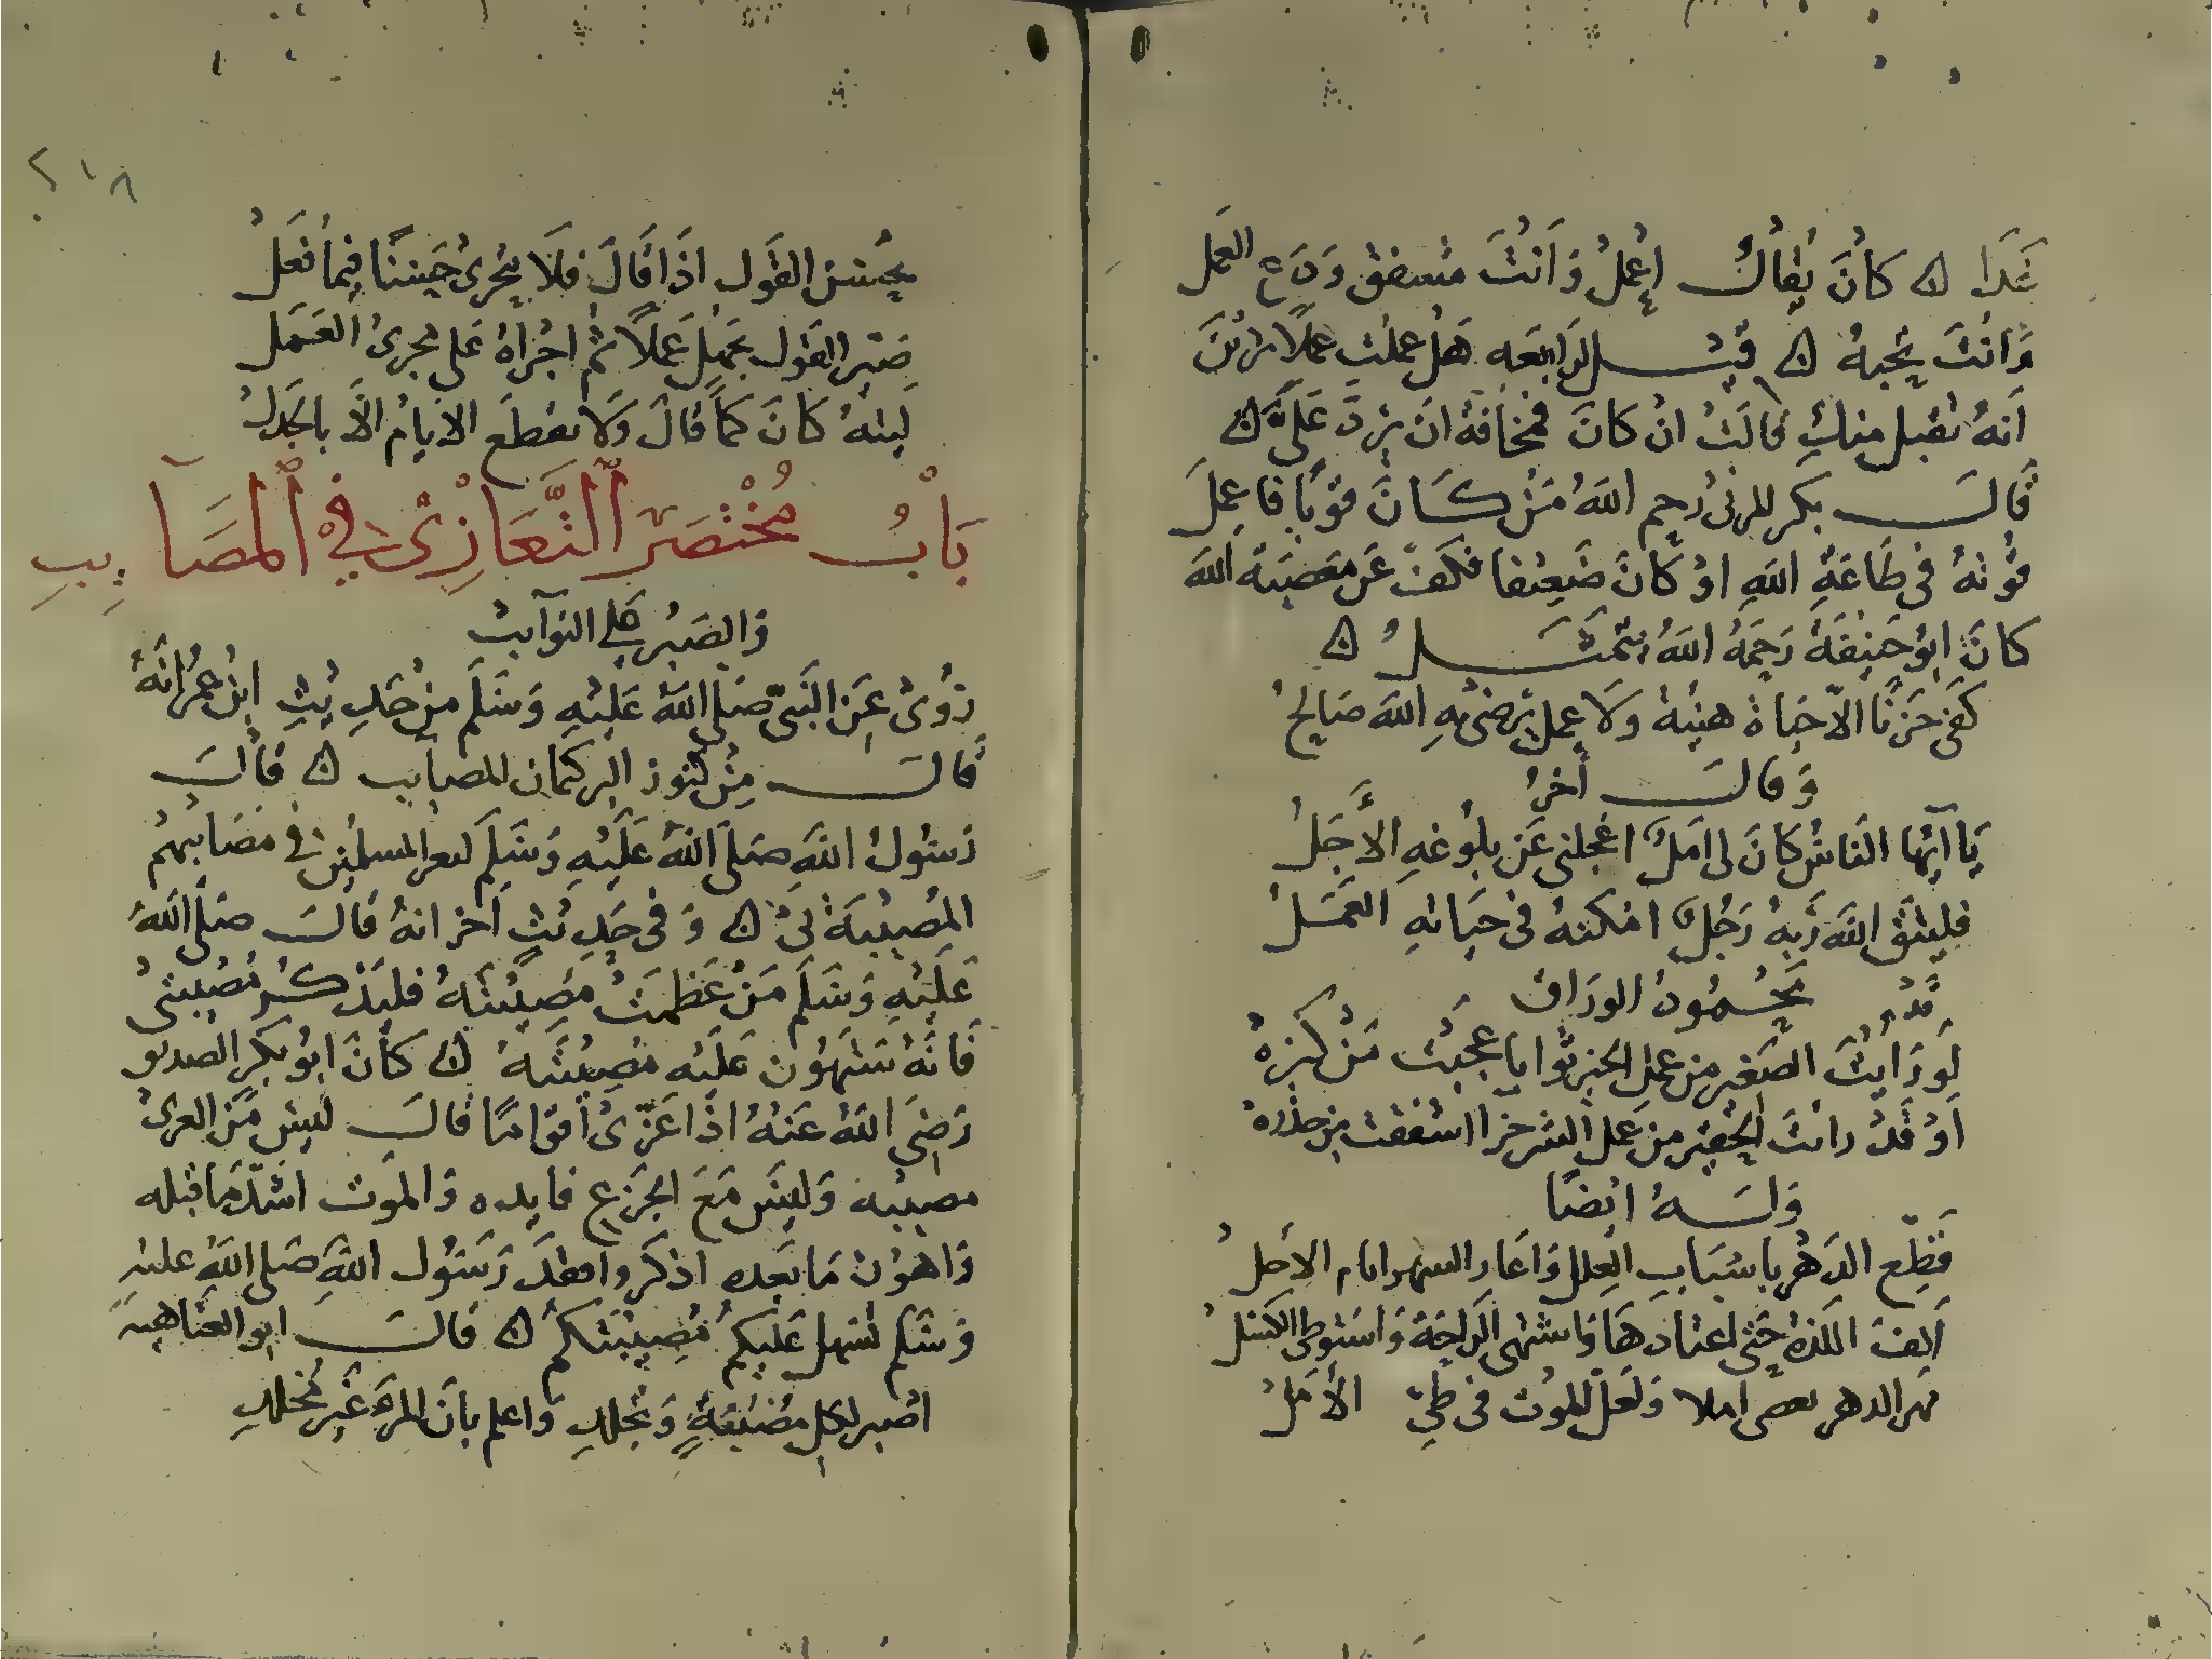 غَدًا ۞ كَانَ يُقَالُ اِعْمَلْ وَاَنْتَ مشفق وَدَعِ العَمل
وَاَنْتَ تحِبهُ ۞ قيـل لرَابعَه هَل عملت عَمَلًا تَرَيْنَ
اَنهُ يقبل منكِ قالَتْ انْ كانَ فمَخَافَةُ انَ يُرَدَّ عَلَىَّ ۞
قَالَ بَكر المزنىُ رَحِم اللهُ مَنْ كَانَ قَوِيًا فاعمِلَ
قُوتهُ فى طَاعَةِ اللهِ اوْ كَانَ ضَعِيفا فكَفَّ عَن مَعصيَة الله
كانَ ابُو حَنِيفَةَ رَحِمَهُ اللهُ يتمَثَلُ ۞
كَفى حَزنًا الاّ حَيَاة هنيَة وَلَا عمل يَرضىْ بهِ الله صَالِحُ
وَقَالَ آخرُ
يَا اَيّها النَاسُ كَانَ لى اَملٌ اعْجلنى عَن بلُوغهِ الاَجَلُ
فليَتَّقِ اللهَ رَبهُ رَجُلٌ امْكَنهُ فى حيَاتهِ العَمَلُ
مَحْمُودُ الورَاق
لَو رَاَيْتَ الصَغير من عملِ الخير ثوابا عجبْتَ مَنْ كبَرهْ
اَوْ قَدْ رايْتَ الحَقير من عَمل الشر جزَا اشفَقت من حذره
وَلَـهُ ايْضًا
قَطِّع الدَهْر باسْبَابِ العِلل وَاعَار السهو ايام الاجل
اَلِفَ اللذة حَتى اعتَادَهَا وَاشتهى الرَاحَةَ وَاسْتوطى الكَسَلُ
الدهر املا وَلَعَلّ الموْت فى طىِّ الأَمَلْ
٢١٨
يحْسن القَول اذَا قَالَ فلَا يتحَرىْ حَسَنًا فِيمَا فَعَلْ
صَيّر القَول بجَهلٍ عَملًا ثمْ اجْرَاهُ عَلى مجرىْ العَمَل
لَيتهُ كَانَ كمَا قَالَ وَلَا يقطَع الايامْ الاَّ بالجَدَلْ
بَابُ مُخْتَصَر التَّعَازِيْ فِي المصَآيِبِ
وَالصَبر عَلي النوَآيب
رُوِىْ عَنِ النَبىّ صَلى اللهُ عَليْهِ وَسَلَم منْ حَدِيثِ ابْن عُمَرْ اَنهُ
قَالَ مِنْ كنوز البر كتمان المصايب ۞ قَالَ
رَسُولُ اللهِ صَلى اللهُ عَلَيْهِ وَسَلَم ليعز المسلمين فى مصَابهمْ
المُصِيبَة بىْ ۞ وَفى حَدِيْثٍ آخر انهُ قَالَ صَلى اللهُ
عَلَيْهِ وَسَلَم مَنْ عَظمَتْ مُصِيْبَتهُ فليَذكُرْ مُصِيبَتىْ
فَانَهُ سَتهُون عَليْه مُصِيبَتهُ ۞ كانَ ابُو بَكر الصديق
رَضىَ اللهُ عَنهُ اذَا عَزّىْ اَقوَامًا قَالَ ليسَ مَعَ العزىْ
مصيبه وَليسَ مَعَ الجَزع فايده وَالموت اشَدّ مَا قبله
وَاهوْن مَا بَعده اذكروا فقْدَ رَسُول اللهِ صَلى اللهُ عليهِ
وَسَلم تسْهل عَليكمُ مُصِيبَتكمْ ۞ قَالَ ابو العَتاهيه
اصبر لكل مُصيبَةٍ وَتجَلدِ وَاعلم بانَ المرءَ غير مُخَلدِ